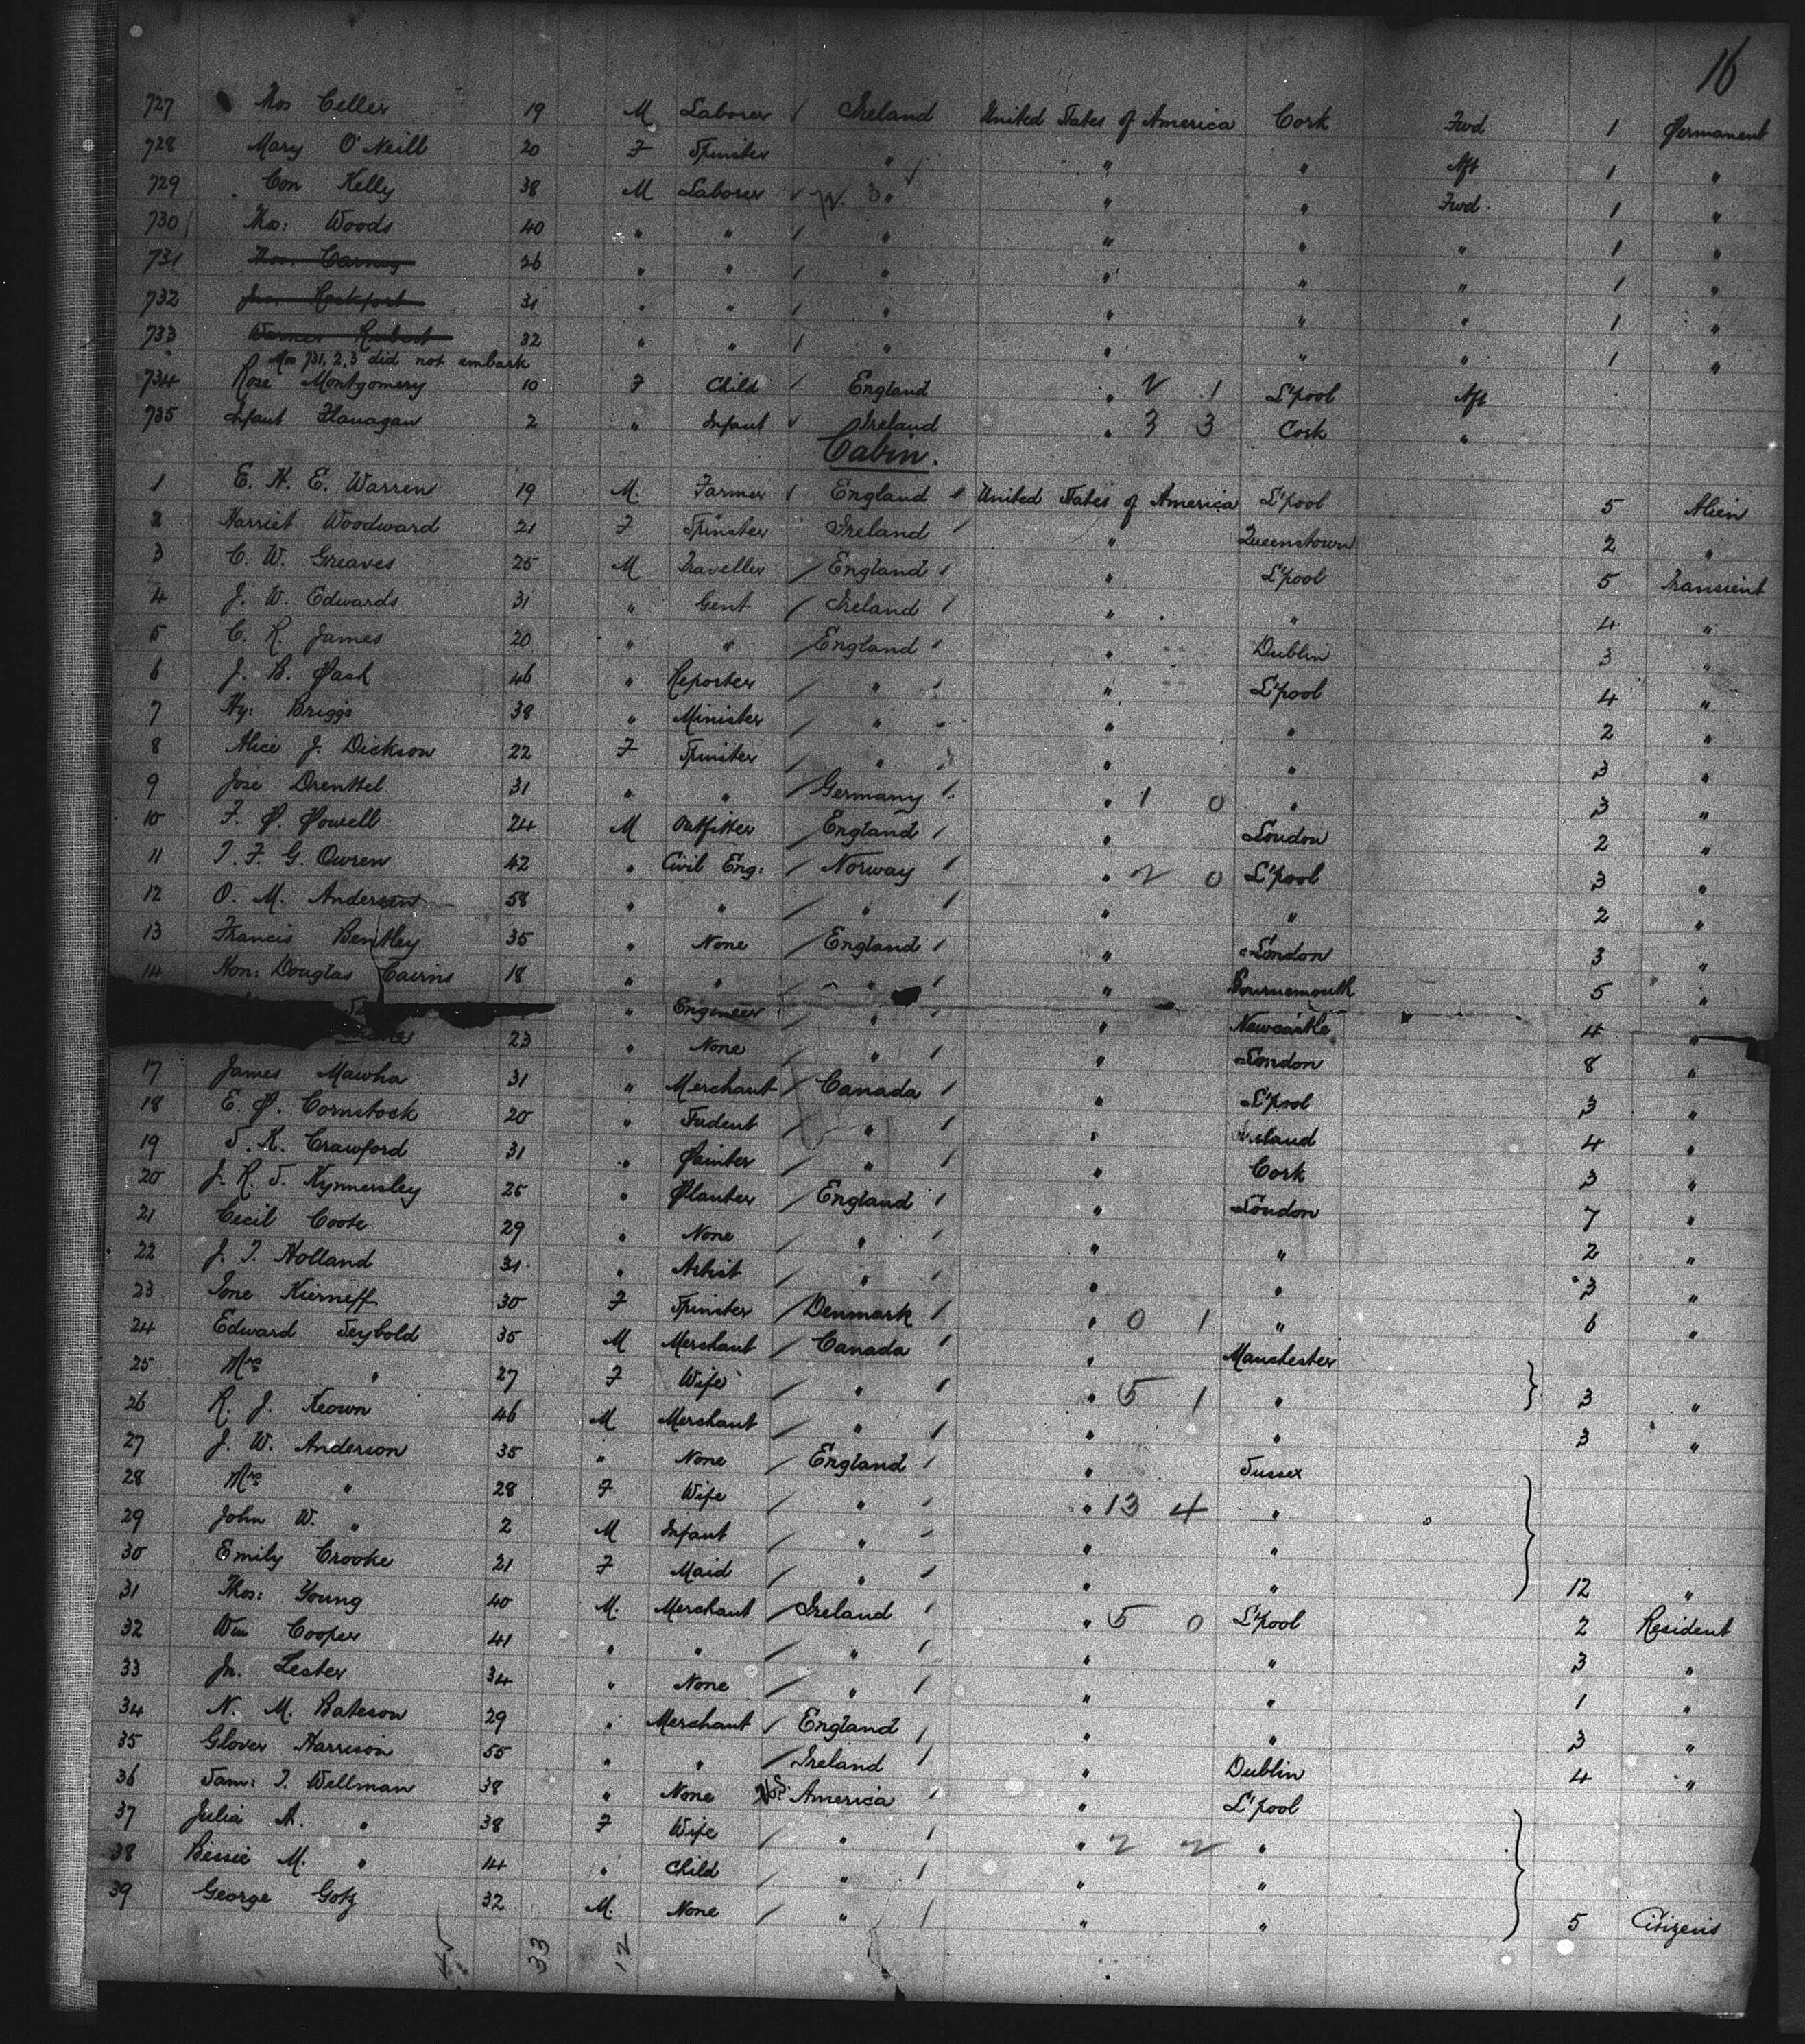 16
727 Thos Celler 19 M Laborer Ireland United States of America Cork Fwd 1 Permanent
728 Mary O'Neill 20 F Spinster " " " Aft 1 "
729 Con Kelly 38 M Laborer " " " Fwd 1 "
730 Thos: Woods 40 " " " " " " 1 "
731 Thos. Carney 26 " " " " " " 1 "
732 Jno. 31 " " " " " " 1 "
733 32 " " " " " " 1 "
Nos 731, 2, 3 did not embark
734 Rose Montgomery 10 F Child England " 2 1 L'pool Aft
735 Infant Flanagan 2 " Infant Ireland " 3 3 Cork "
Cabin.
1 E. H. E. Warren 19 M. Farmer England United States of America L'pool 5 Alien
2 Harriet Woodward 21 F Spinster Ireland " Queenstown 2 "
3 C. W. Greaves 25 M Traveller England " L'pool 5 Transient
4 J. W. Edwards 31 " Gent Ireland " " 4 "
5 C. R. James 20 " " England " Dublin 3 "
6 J. B. Pash 46 " Reporter " " L'pool 4 "
7 Hy: Briggs 38 " Minister " " " 2 "
8 Alice J. Dickson 22 F Spinster " " " 3 "
9 Jose Drenttel 31 " " Germany " 1 0 " 3 "
10 F. P. Powell 24 M Outfitter England " London 2 "
11 T. F. G. Owren 42 " Civil Eng: Norway " 2 0 L'pool 3 "
12 O. M. Andersen 58 " " " " " 2 "
13 Francis Bentley 35 " None England " London 3 "
14 Hon: Douglas Cairns 18 " " " " Bournemouth 5 "
" Engineer " " Newcastle 4 "
23 " None " " London 8 "
17 James Mawha 31 " Merchant Canada " L'pool 3 "
18 E. P. Comstock 20 " Student " " Ireland 4 "
19 S. K. Crawford 31 " Painter " " Cork 3 "
20 J. R. S. Kynnersley 25 " Planter England " London 7 "
21 Cecil Coote 29 " None " " " 2 "
22 J. T. Holland 31 " Artist " " " 3 "
23 Ione Kierneff 30 F Spinster Denmark " 0 1 " 6 "
24 Edward Seybold 35 M Merchant Canada " Manchester
25 Mrs " 27 F Wife " " 5 1 " 3 "
26 R. J. Keown 46 M Merchant " " " 3 "
27 J. W. Anderson 35 " None England " Sussex
28 Mrs " 28 F Wife " " 13 4 "
29 John W. " 2 M Infant " " "
30 Emily Crooke 21 F Maid " " " 12 "
31 Thos: Young 40 M. Merchant Ireland " 5 0 L'pool 2 Resident
32 Wm Cooper 41 " " " " " 3 "
33 Jn. Lester 34 " None " " " 1 "
34 N. M. Bateson 29 " Merchant England " " 3 "
35 Glover Harrison 55 " " Ireland " Dublin 4 "
36 Sam: T. Wellman 38 " None U.S. America " L'pool
37 Julia A. " 38 F Wife " " 2 2 "
38 Bessie M. " 14 " Child " " "
39 George Gotz 32 M. None " " " 5 Citizens
45 33 12